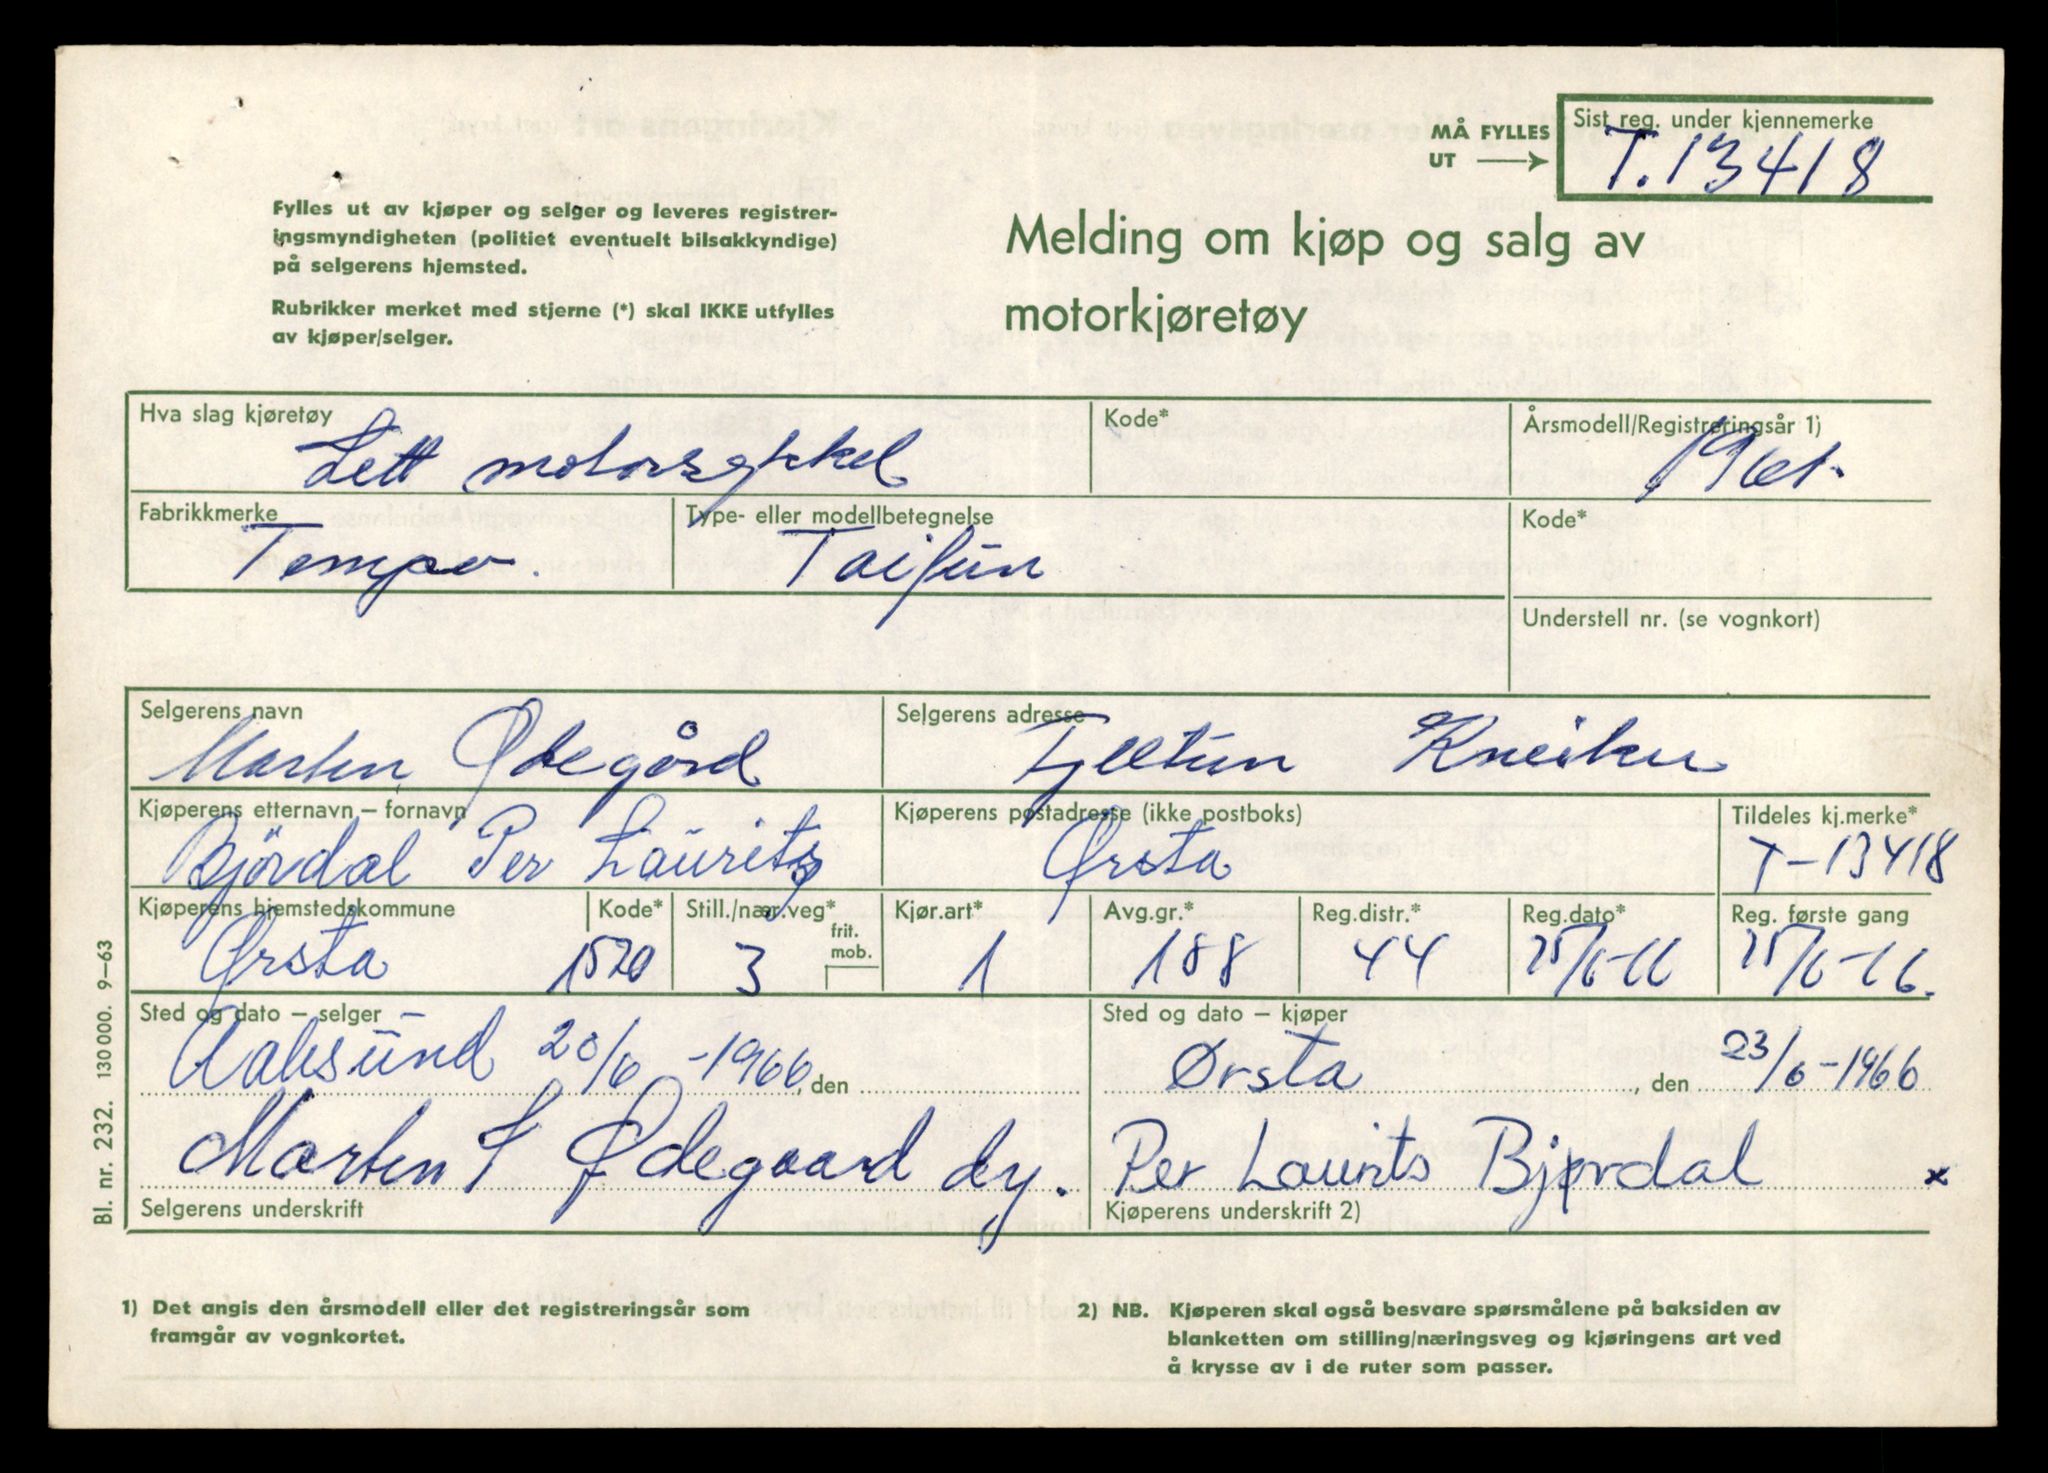 MÅ FYLLES UT
Sist reg. under kjennemerke
T. 13418
Fylles ut av kjøper og selger og leveres registrer-
ingsmyndigheten (politiet eventuelt bilsakkyndige)
på selgerens hjemsted.
Rubrikker merket med stjerne (*) skal IKKE utfylles
av kjøper/selger.
Melding om kjøp og salg av
motorkjøretøy
Hva slag kjøretøy Kode* Årsmodell/Registreringsår 1)
Lett motorsykkel
Fabrikkmerke Type- eller modellbetegnelse Kode*
Tempo. Taifun
Understell nr. (se vognkort)
Selgerens navn Selgerens adresse
Marten Ødegård Fjeltun
Kjøperens etternavn – fornavn Kjøperens postadresse (ikke postboks) Tildeles kj.merke*
Björdal Per Laurits Ørsta T-13418
Kjøperens hjemstedskommune Kode* Still./nær.veg* frit. mob. Kjør.art* Avg.gr.* Reg.distr.* Reg.dato* Reg. første gang
Ørsta 1520 3 1 188 44 25/6-66 25/6-66.
Sted og dato – selger Sted og dato – kjøper
Aalesund 20/6 -1966, den Ørsta, den 23/6-1966
Marten Ødegaard Per Laurits Bjørdal x
Selgerens underskrift Kjøperens underskrift 2)
Bl. nr. 232. 130 000. 9–63
1) Det angis den årsmodell eller det registreringsår som
framgår av vognkortet.
2) NB. Kjøperen skal også besvare spørsmålene på baksiden av
blanketten om stilling/næringsveg og kjøringens art ved
å krysse av i de ruter som passer.